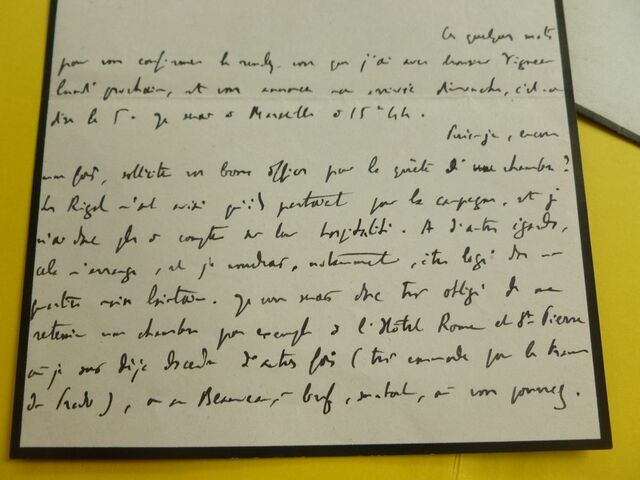 Ces quelques mots
pour vous confirmer le rendez-vous que j'ai avec Monsieur Vigneau
lundi prochain, et vous annoncer mon arrivée dimanche, c'est-à-
dire le 5. Je serai à Marseille à 15h44.
Puis-je, encore
une fois, solliciter vos bons offices pour la quête d'une chambre ?
Les Rigal m'ont avisé qu'ils partaient pour la campagne, et je
n'ai donc plus à compter sur leur hospitalité. A d'autres égards,
cela m'arrange, et je voudrais, notamment, être logé dans un
quartier moins lointain. Je vous serais donc très obligé de me
retenir une chambre par exemple à l'Hôtel Rome et St Pierre
où je suis déjà descendu d'autres fois (très commode pour le tram
du Prado), ou au Beauvau, bref, surtout, où vous pourrez.